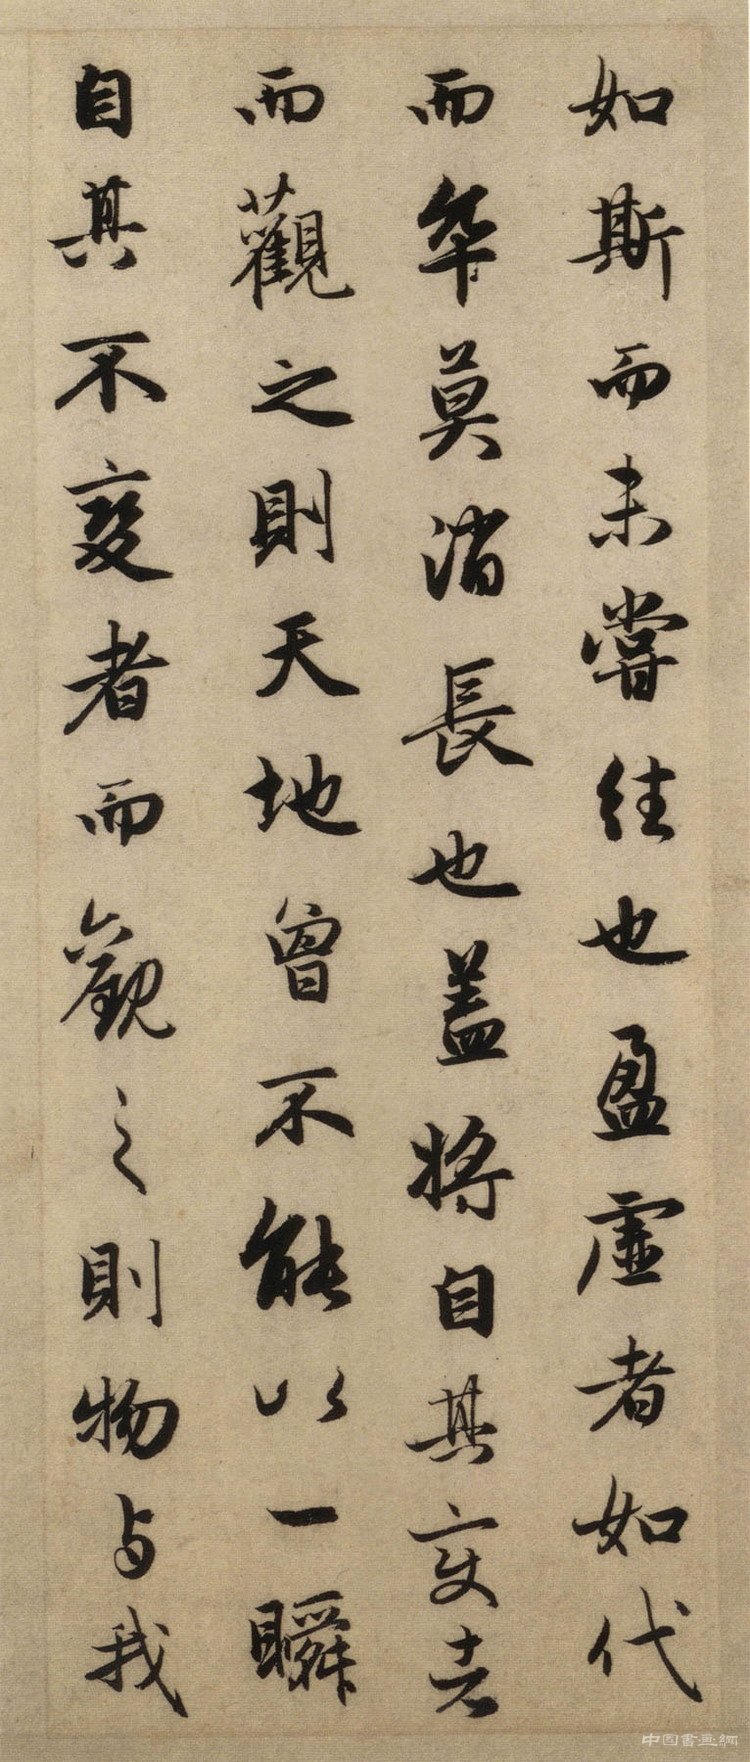 如斯而未嘗往也盈虛者如代
而卒莫消長也蓋將自其變者
而觀之則天地曾不能以一瞬
自其不變者而觀之則物與我
中国書画網